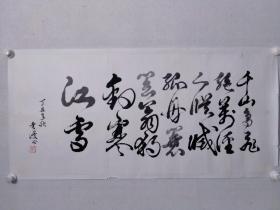 千山鳥飛
絕萬徑
人蹤滅
孤舟蓑
笠翁獨
釣寒
江雪